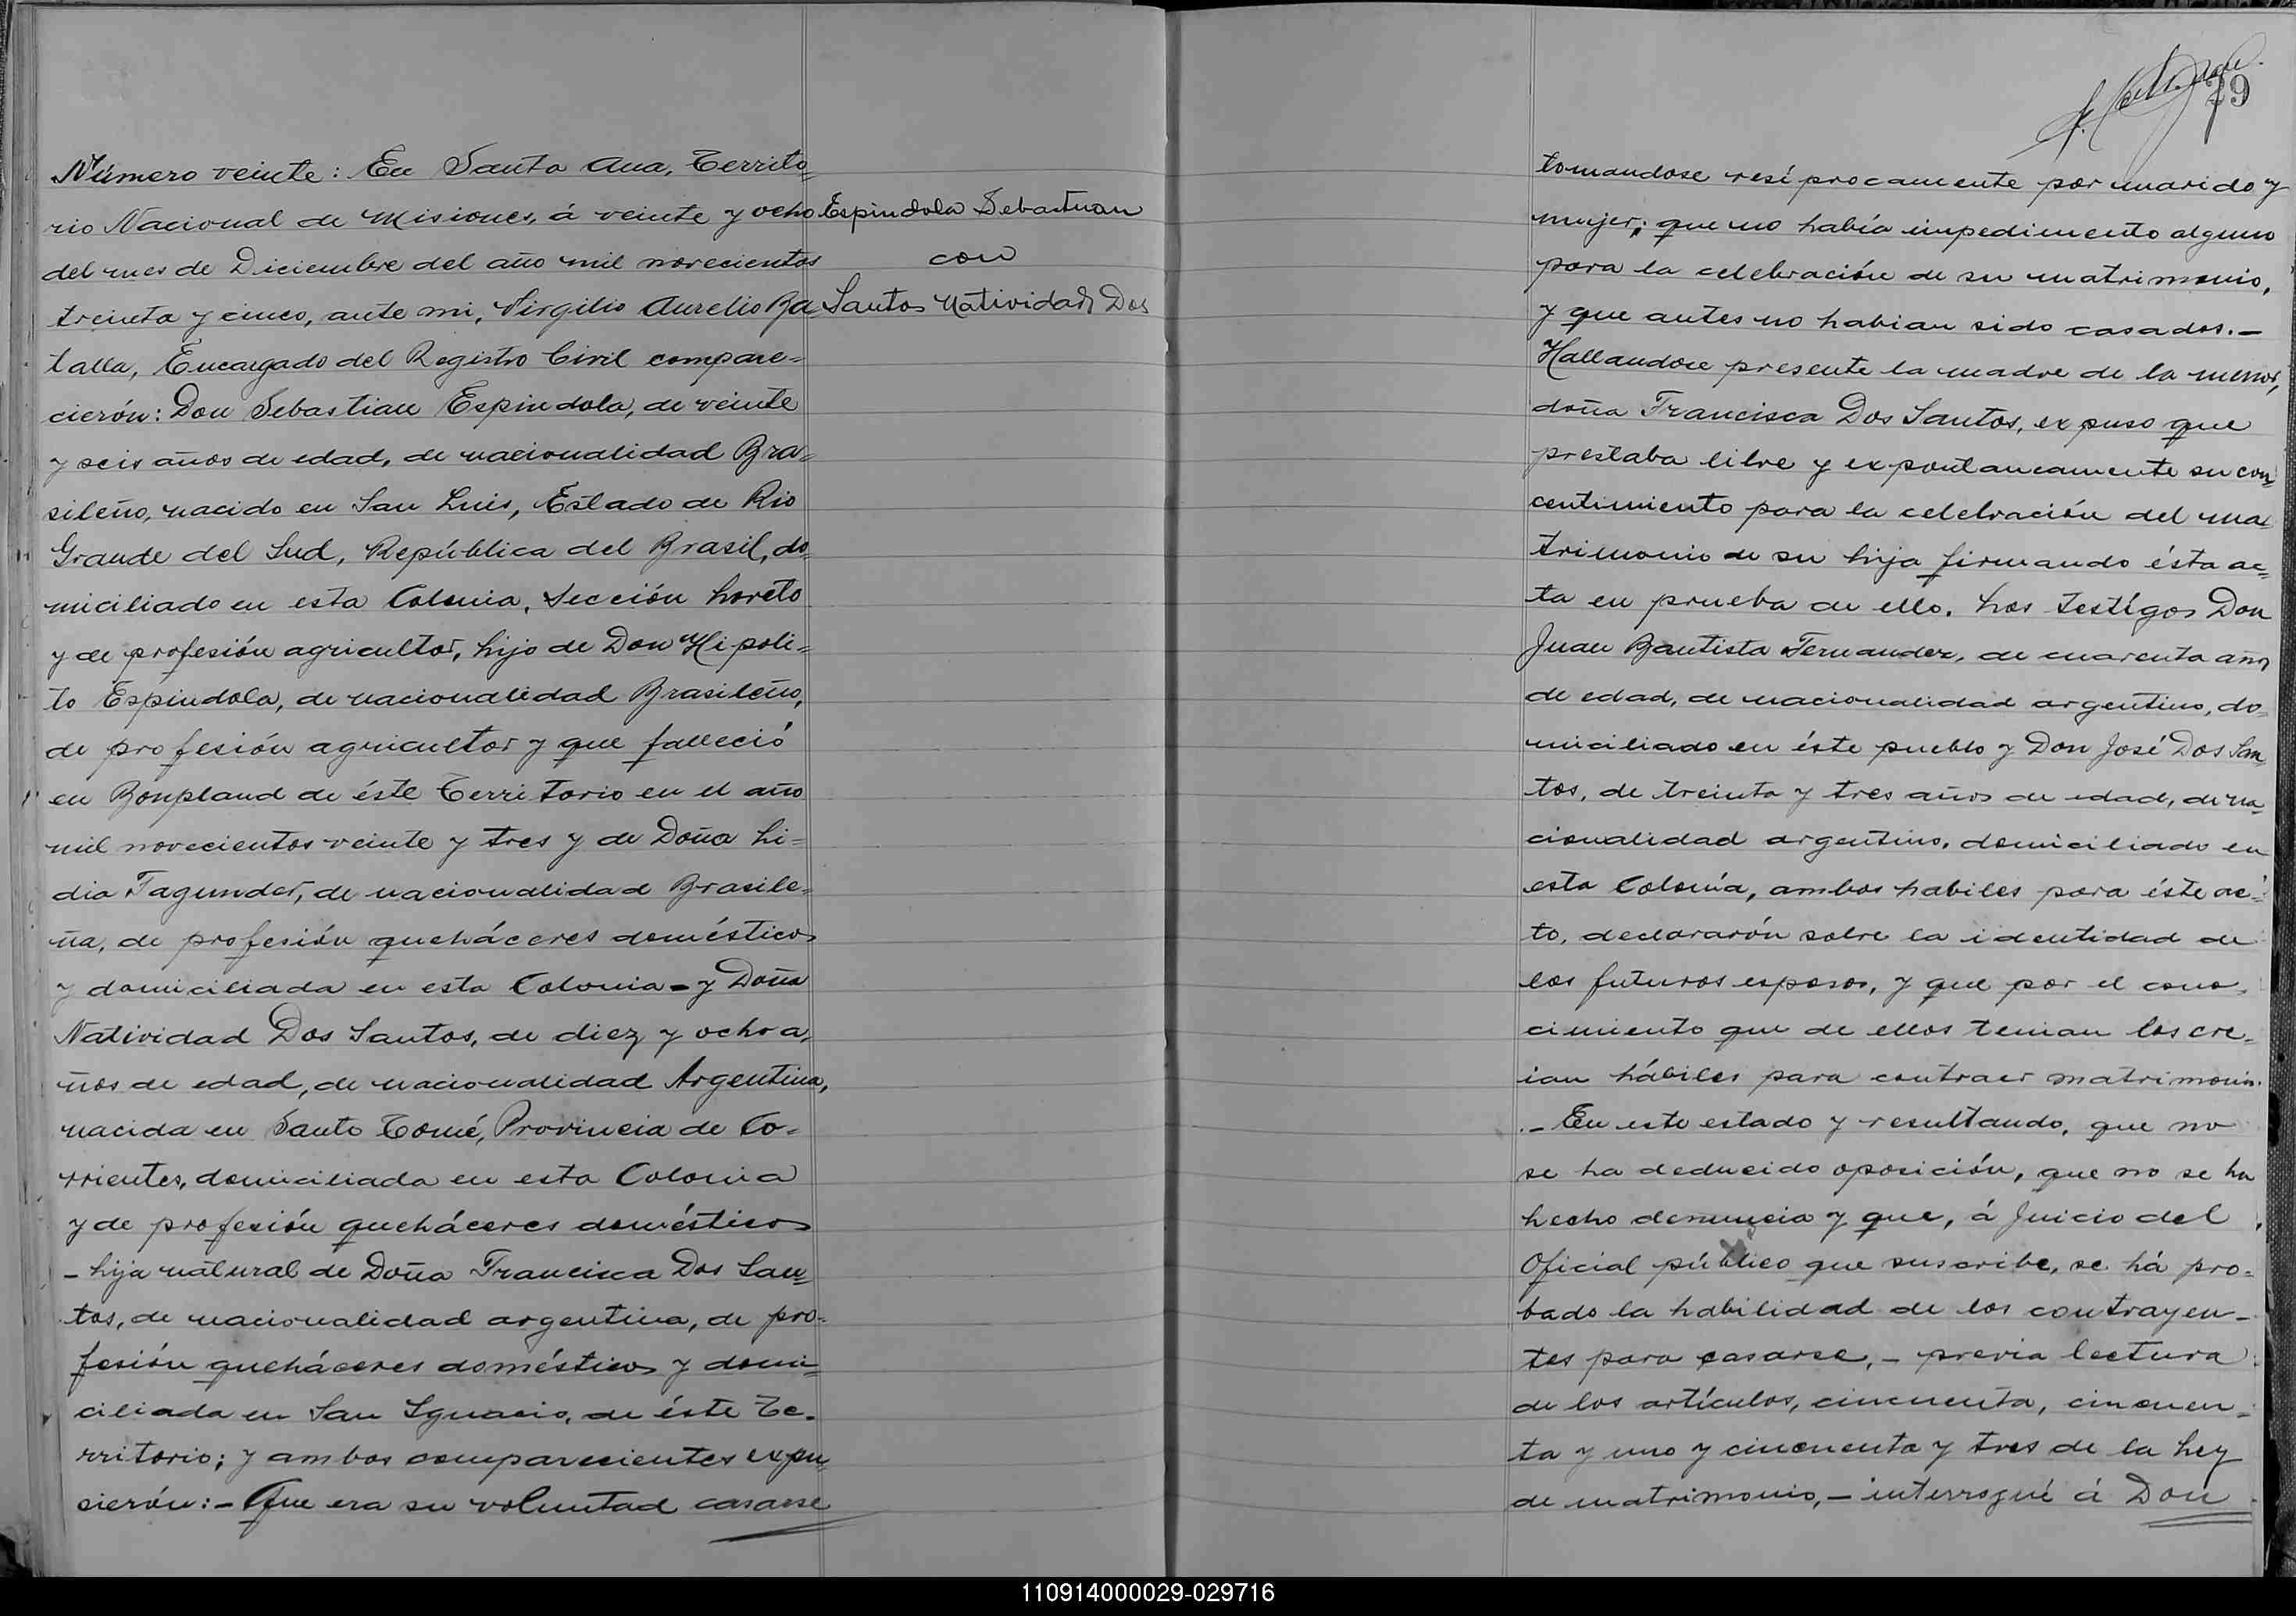 Número veinte: En Santa Ana, Territo=
rio Nacional de Misiones, á veinte y ocho
del mes de Diciembre del año mil novecientos
treinta y cinco, ante mi, Virgilio Aurelio Ba=
talla, Encargado del Registro Civil compare=
cierón: Don Sebastian Espindola, de veinte
y seis años de edad, de nacionalidad Bra=
sileño, nacido en San Luis, Estado de Rio
Grande del Sud, República del Brasil, do=
miciliado en esta Colonia, Sección Loreto
y de profesión agricultor, hijo de Don Hipoli=
to Espindola, de nacionalidad Brasileño,
de profesión agricultor y que falleció
en Bonpland de éste Territorio en el año
mil novecientos veinte y tres y de Doña Li=
dia Fagundez, de nacionalidad Brasile=
ña, de profesión queháceres domésticos
y domiciliada en esta Colonia - y Doña
Natividad Dos Santos, de diez y ocho a=
ños de edad, de nacionalidad Argentina,
nacida en Santo Tomé, Provincia de Co=
rrientes, domiciliada en esta Colonia
y de profesión queháceres domésticos
- hija natural de Doña Francisca Dos San=
tos, de nacionalidad argentina, de pro=
fesión queháceres domésticos y domi=
ciliada en San Ignacio, de éste Te=
rritorio; y ambos comparecientes expu=
sierón: - Que era su voluntad casarse
Espindola Sebastian
con
Santos Natividad Dos
79
tomandose resíprocamente por marido y
mujer; que no había impedimento alguno
para la celebración de su matrimonio,
y que antes no habian sido casados. -
Hallandose presente la madre de la menor,
doña Francisca Dos Santos, expuso que
prestaba libre y expontaneamente su con=
centimiento para la celebración del ma=
trimonio de su hija firmando ésta ac=
ta en prueba de ello. Los testígos Don
Juan Bautista Fernandez, de cuarenta años
de edad, de nacionalidad argentino, do=
miciliado en éste pueblo y Don José Dos San=
tos, de treinta y tres años de edad, de na=
cionalidad argentino, domiciliado en
esta Colonia, ambos habiles para éste ac=
to, declararón sobre la identidad de
los futuros esposos, y que por el cono=
cimiento que de ellos tenian los cre=
ian hábiles para contraer matrimonio.
. - En este estado y resultando, que no
se ha deducido oposición, que no se ha
hecho denuncia y que, á Juicio del
Oficial público que suscribe, se há pro=
bado la habilidad de los contrayen-
tes para casarse, - previa lectura
de los artículos, cincuenta, cincuen=
ta y uno y cincuenta y tres de la Ley
de matrimonio, - interrogué á Don
110914000029-029716